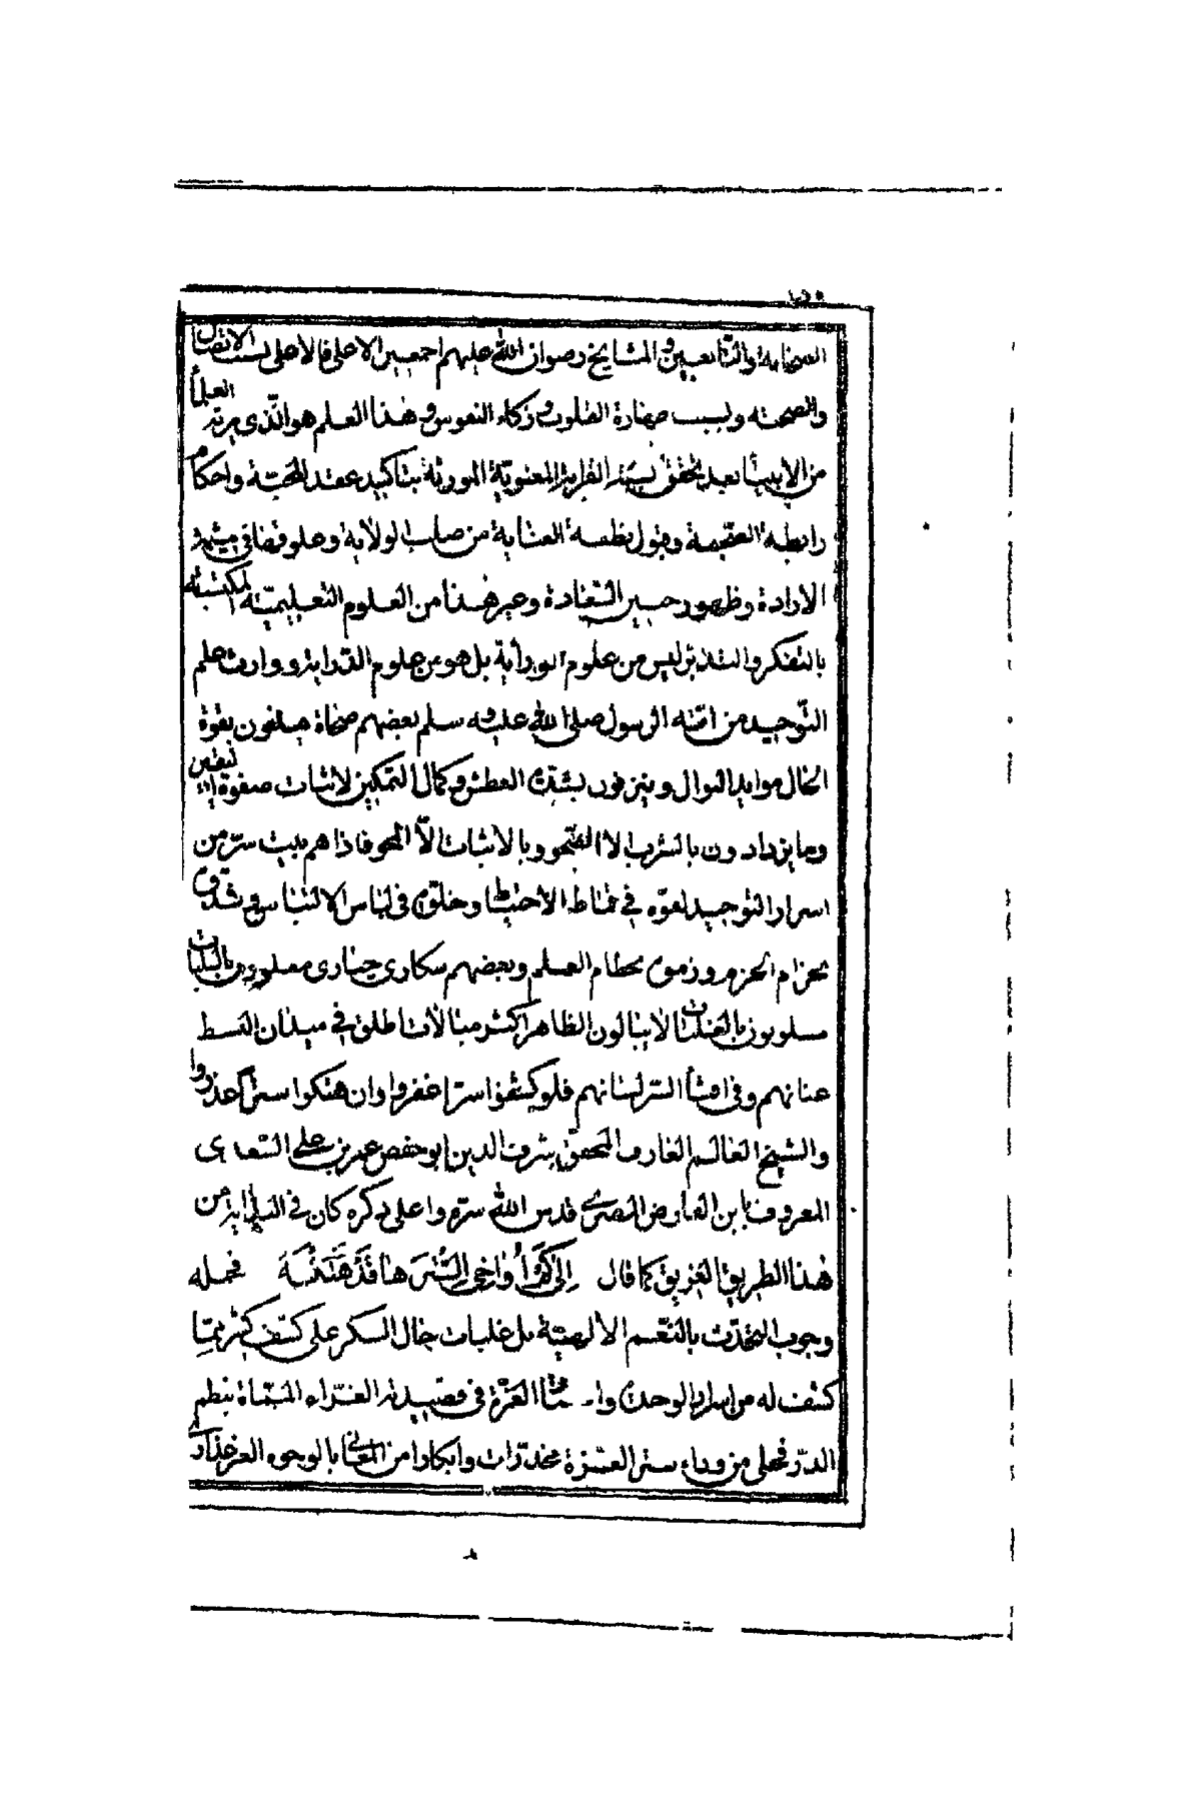 الصحابة والتابعين والمشايخ رضوان الله عليهم اجمعين الاعلى فالاعلى بسبب الاتصال
والصحبة وبسبب طهارة القلوب وزكاء النفوس وهذا العلم هو الذى يرثه العلمأ
من الانبيأ بعد تحقق نسبة القرابة المعنوية المورثة بتاكيد عقد المحبة واحكام
رابطة العقيدة وقبول نطفة العناية من صلب الولاية وعلوقها فى مشيمة
الارادة وظهور جنين السعادة وغير هذا من العلوم التعليمية المكتسبة
بالتفكر والتدبر ليس من علوم الوراثة بل هو من علوم الدراية ووارث علم
التوحيد من امته الرسول صلى الله عليه وسلم بعضهم صحاة يتلقون بقوة
الحال موايد النوال وينزفون بشدة العطش وكمال التمكين لاثبات صفوة اليقين
وما يزدادون بالشرب الا الصحو وبالاثبات الا المحو فاذا هم ببيت سر من
اسرار التوحيد لفوه فى قماط الاحتياط وخلقوه فى لباس الالتباس وشدوه
بحزام الحزم وزموه بخطام العلم وبعضهم سكارى حيارى مغلوبون بالتلبات
مسلوبون بالغلبات لا يبالون الظاهر اكثر مبالات اطلق فى ميدان البسط
عنانهم وفى افشأ السر لسانهم فلو كشفوا سرا غفروا وان هتكوا سترا عذروا
والشيخ العالم العارف المحقق شرف الدين ابو حفص عمر بن على السعدى
المعروف بابن الفارض المصرى قدس الله سره واعلى ذكره كان فى البداية من
هذا الطريق الفريق كما قال فحمله
وجوب التحدث بالنعم الالهية بل غلبات حال السكر على كشف كثير مما
كشف له من اسرار الوحدة العزة فى قصيدته الغراء المسماة بنظم
الدر فجلى من وراء ستر العزة مخدرات وابكارا من المعانى بالوجوه الغر عذارى